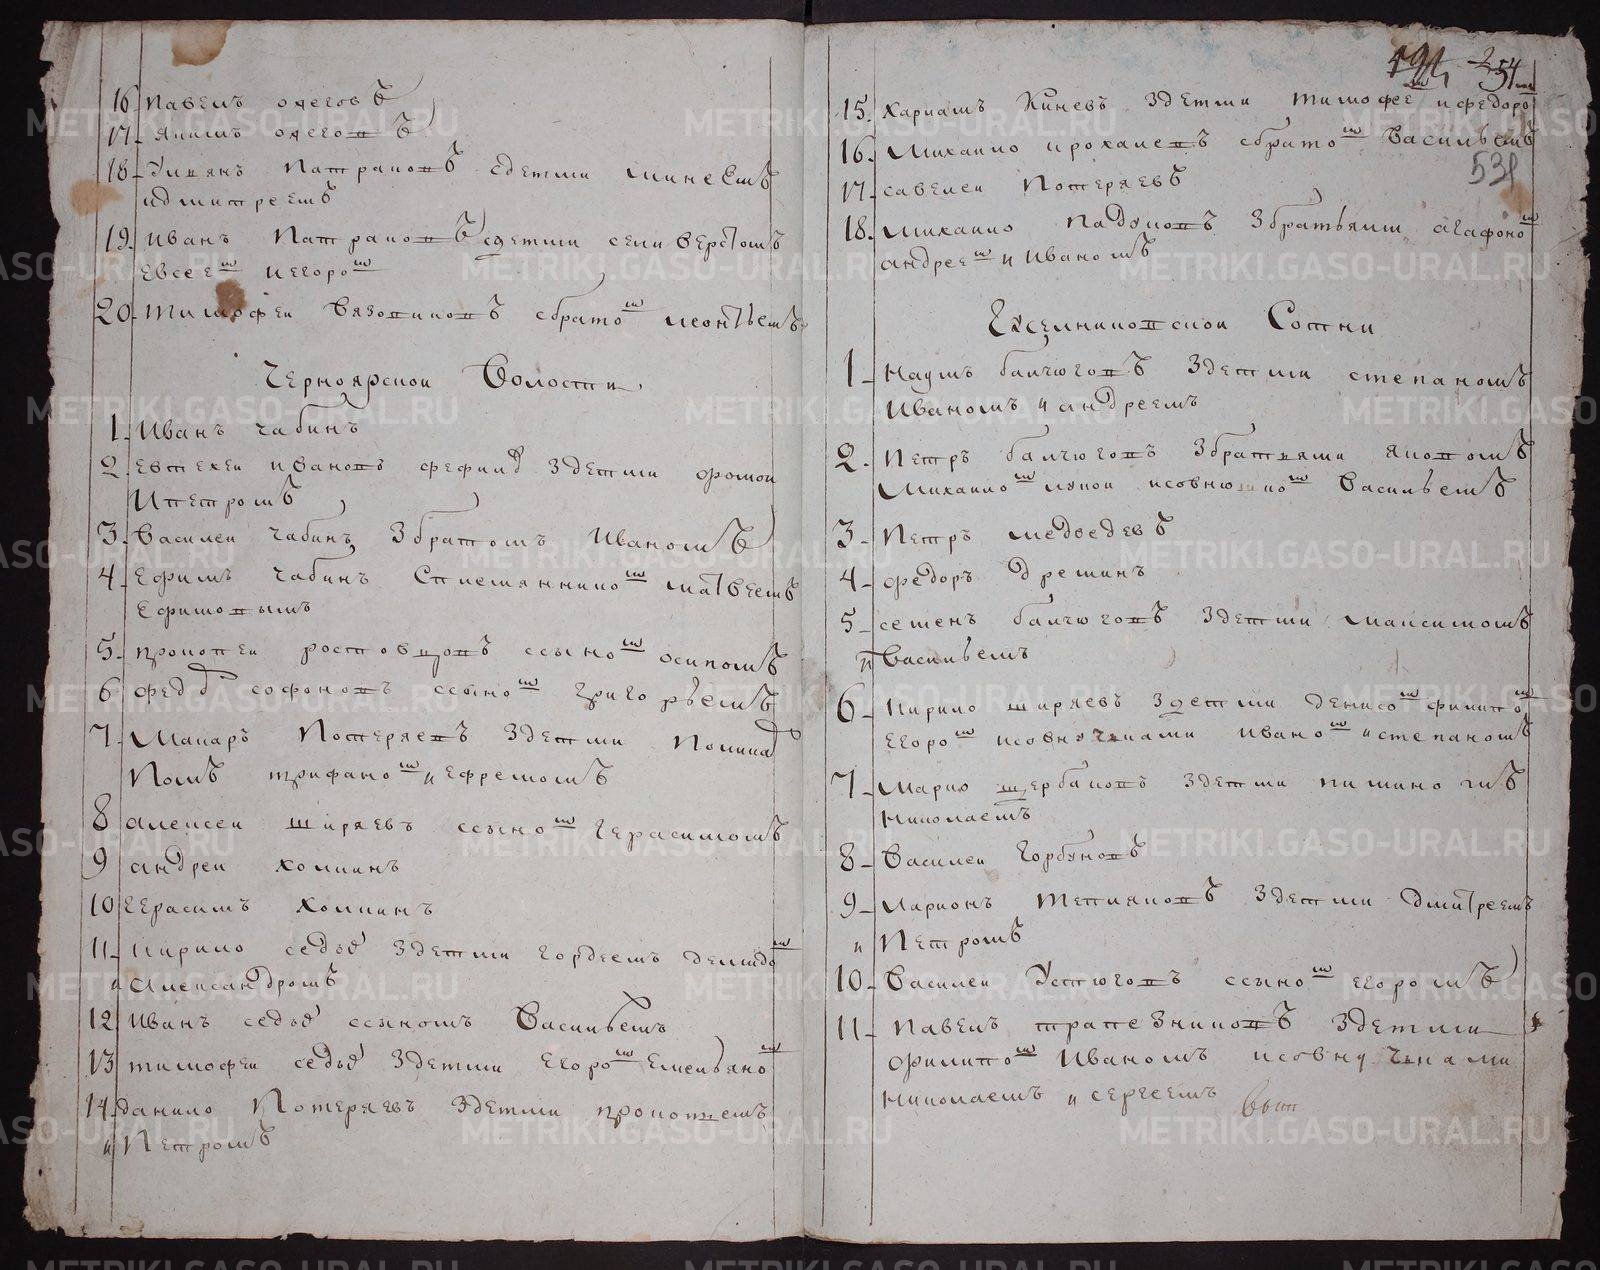 16 Павелъ ожеговъ
17 Якимъ ожеговъ
18 Ульянъ Патраковъ сдетми минеемъ
идмитреемъ
19 Иванъ Патраковъ сдетми селиверстомъ
Евсеемъ иегоромъ
20 Тимофеи Вязовиковъ сбратомъ леонтьемъ
Черноярскои Волости
1 Иванъ чабинъ
2 Евтехеи ивановъ здетми фомои
ипетромъ
3 Василеи чабинъ збратомъ Иваномъ
4 Ефимъ чабинъ сплемянникомъ матвеемъ
Ефимовымъ
5 прокопеи ростовщиковъ ссыномъ осипомъ
6 софоновъ ссыномъ григорьемъ
7 Макаръ Потеряевъ здетми
трифаномъ и ефремомъ
8 алексеи ширяевъ ссыномъ Герасимомъ
9 андреи холкинъ
10 Герасимъ холкинъ
11 кирило седых здетми гордеемъ демидомъ
и Александромъ
12 Иванъ седых ссыномъ Васильемъ
13 тимофеи седых здетми Егоромъ Емельяномъ
14 данило Потеряевъ здетми прокопьемъ
и Петромъ
194 254
538
15 Харламъ здетми тимофее ифедоро
16 Михаило прохалевъ сбратомъ Васильемъ
17 савелеи Потеряевъ
18 михаило Падуковъ збратьями агафономъ
андреемъ и Иваномъ
Ексельниковскои Сотни
1 Наумъ балчюговъ здетми степаномъ
Иваномъ и андреемъ
2 Петръ балчюговъ збратьями яковомъ
Михаиломъ лукои исовнукомъ Васильемъ
3 Петръ медведевъ
4 федоръ
5 семенъ балчюговъ здетми максимомъ
и Васильемъ
6 кирило ширяевъ здетми денисомъ филипомъ
Егоромъ исовнучками иваномъ и степаномъ
7 Марко щербаковъ здетми
Николаемъ
8 Василеи Горбуновъ
9 Ларионъ Тепляковъ здетми дмитреемъ
и Петромъ
10 Василеи Устюговъ ссыномъ егоромъ
11 Павелъ трапезниковъ здетми
филипомъ Иваномъ исовнучками
Николаемъ и сергеемъ
METRIKI.GASO-URAL.RU